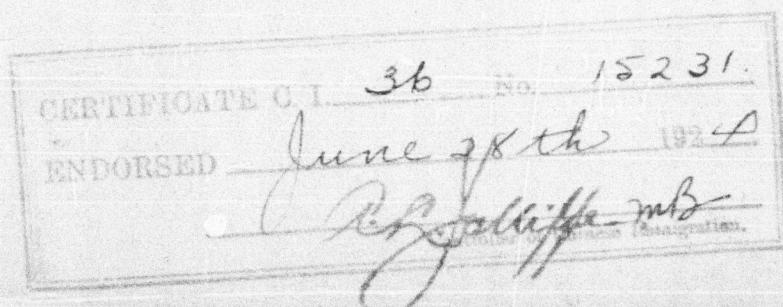 CERTIFICATE C. I. 36 No. 15231.
ENDORSED June 28th 1924
Controller of Chinese Immigration.